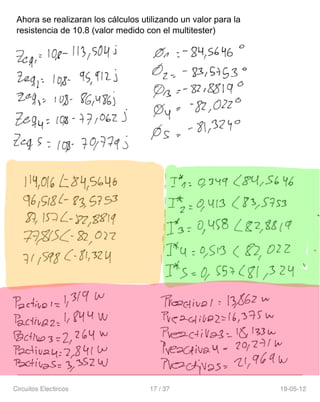 Ahora se realizaran los cálculos utilizando un valor para la
resistencia de 10.8 (valor medido con el multitester)
Zeq1 = 10,8 - 113,504 j
Zeq2 = 10,8 - 95,912 j
Zeq3 = 10,8 - 86,486 j
Zeq4 = 10,8 - 77,062 j
Zeq5 = 10,8 - 70,779 j
Ø1 = -84,5646°
Ø2 = -83,5753°
Ø3 = -82,8819°
Ø4 = -82,022°
Ø5 = -81,324°
114,016 ∠-84,5646
96,518 ∠-83,5753
87,157 ∠-82,8819
77,815 ∠-82,022
71,598 ∠-81,324
I*1 = 0,349 ∠84,5646
I*2 = 0,413 ∠83,5753
I*3 = 0,458 ∠82,8819
I*4 = 0,513 ∠82,022
I*5 = 0,557 ∠81,324
Pactiva1 = 1,319 W
Pactiva2 = 1,844 W
Pactiva3 = 2,264 W
Pactiva4 = 2,841 W
Pactiva5 = 3,352 W
Preactiva1 = 13,862 W
Preactiva2 = 16,375 W
Preactiva3 = 18,133 W
Preactiva4 - 20,271 W
Preactiva5 = 21,969 W
Circuitos Electircos
17 / 37
19-05-12